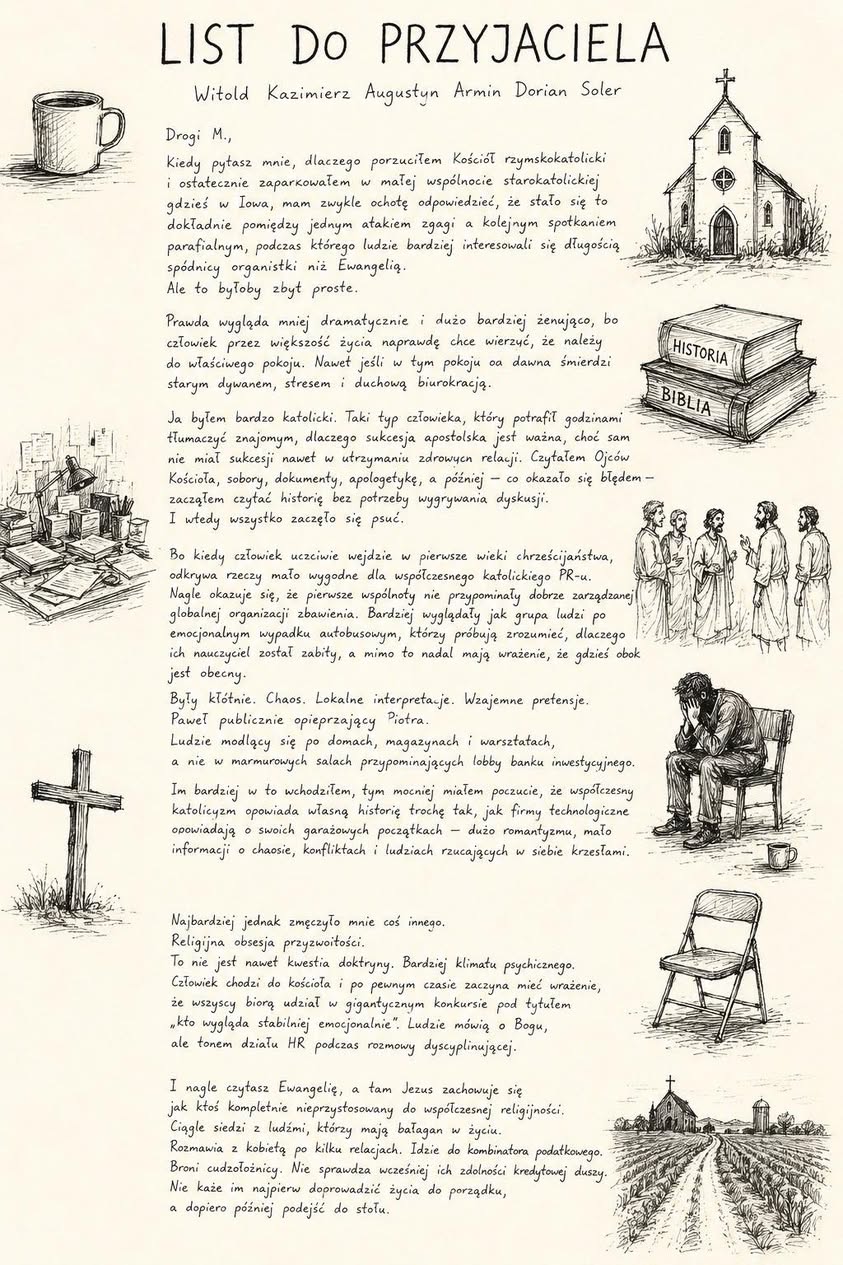 LIST DO PRZYJACIELA
Witold Kazimierz Augustyn Armin Dorian Soler
Drogi M.,
Kiedy pytasz mnie, dlaczego porzuciłem Kościół rzymskokatolicki
i ostatecznie zaparkowałem w małej wspólnocie starokatolickiej
gdzieś w Iowa, mam zwykle ochotę odpowiedzieć, że stało się to
dokładnie pomiędzy jednym atakiem zgagi a kolejnym spotkaniem
parafialnym, podczas którego ludzie bardziej interesowali się długością
spódnicy organistki niż Ewangelią.
Ale to byłoby zbyt proste.
Prawda wygląda mniej dramatycznie i dużo bardziej żenująco, bo
człowiek przez większość życia naprawdę chce wierzyć, że należy
do właściwego pokoju. Nawet jeśli w tym pokoju oa dawna śmierdzi
starym dywanem, stresem i duchową biurokracją.
Ja byłem bardzo katolicki. Taki typ człowieka, który potrafił godzinami
tłumaczyć znajomym, dlaczego sukcesja apostolska jest ważna, choć sam
nie miał sukcesji nawet w utrzymaniu zdrowych relacji. Czytałem Ojców
Kościoła, sobory, dokumenty, apologetykę, a później – co okazało się błędem –
zacząłem czytać historię bez potrzeby wygrywania dyskusji.
I wtedy wszystko zaczęło się psuć.
Bo kiedy człowiek uczciwie wejdzie w pierwsze wieki chrześcijaństwa,
odkrywa rzeczy mało wygodne dla współczesnego katolickiego PR-u.
Nagle okazuje się, że pierwsze wspólnoty nie przypominały dobrze zarządzanej
globalnej organizacji zbawienia. Bardziej wyglądały jak grupa ludzi po
emocjonalnym wypadku autobusowym, którzy próbują zrozumieć, dlaczego
ich nauczyciel został zabity, a mimo to nadal mają wrażenie, że gdzieś obok
jest obecny.
Były kłótnie. Chaos. Lokalne interpretacje. Wzajemne pretensje.
Paweł publicznie opieprzający Piotra.
Ludzie modlący się po domach, magazynach i warsztatach,
a nie w marmurowych salach przypominających lobby banku inwestycyjnego.
Im bardziej w to wchodziłem, tym mocniej miałem poczucie, że współczesny
katolicyzm opowiada własną historię trochę tak, jak firmy technologiczne
opowiadają o swoich garażowych początkach – dużo romantyzmu, mało
informacji o chaosie, konfliktach i ludziach rzucających w siebie krzesłami.
Najbardziej jednak zmęczyło mnie coś innego.
Religijna obsesja przyzwoitości.
To nie jest nawet kwestia doktryny. Bardziej klimatu psychicznego.
Człowiek chodzi do kościoła i po pewnym czasie zaczyna mieć wrażenie,
że wszyscy biorą udział w gigantycznym konkursie pod tytułem
„kto wygląda stabilniej emocjonalnie”. Ludzie mówią o Bogu,
ale tonem działu HR podczas rozmowy dyscyplinującej.
I nagle czytasz Ewangelię, a tam Jezus zachowuje się
jak ktoś kompletnie nieprzystosowany do współczesnej religijności.
Ciągle siedzi z ludźmi, którzy mają bałagan w życiu.
Rozmawia z kobietą po kilku relacjach. Idzie do kombinatora podatkowego.
Broni cudzołożnicy. Nie sprawdza wcześniej ich zdolności kredytowej duszy.
Nie każe im najpierw doprowadzić życia do porządku,
a dopiero później podejść do stołu.
HISTORIA
BIBLIA